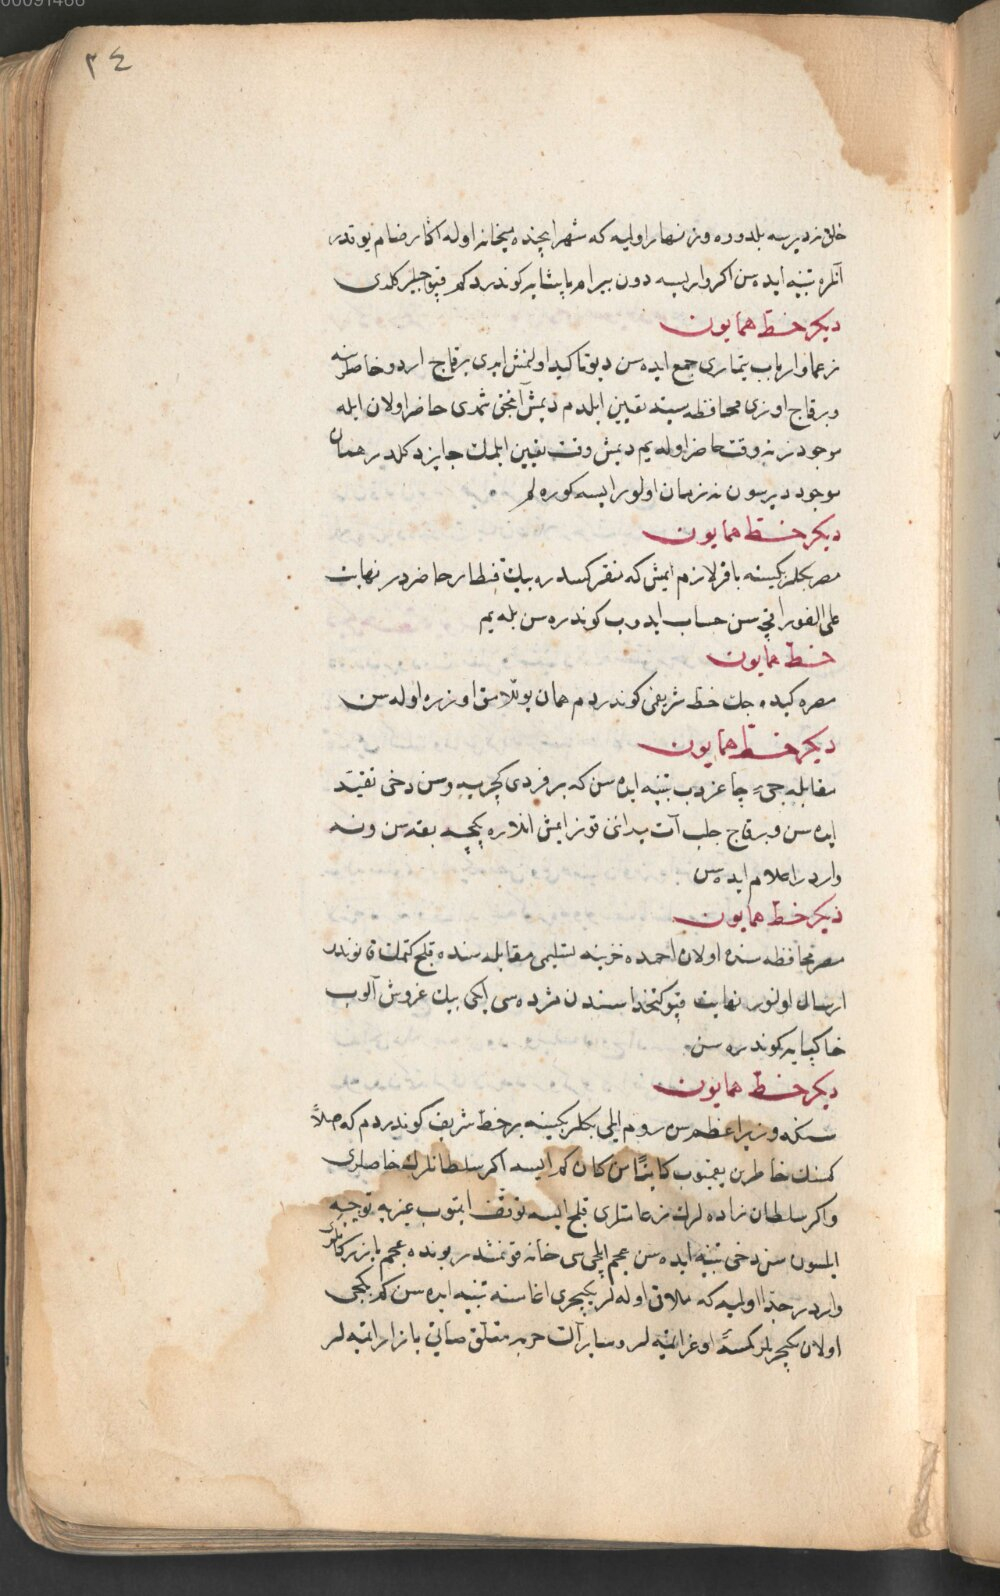 00091466
٣٤
خلق نه دیرسه بلدوره و زنهار اولیه که شهر ایچنده میخانه اوله اکا رضام یوقدر
آنلره تنبیه ایده سن اکر وار ایسه دون بیرام پاشایه کوندردکم قپوجیلر کلدی
دیکر خط همایون
زعما و ارباب تیماری جمع ایده سن دیو تاکید اولنمش ایدی برقاچ اردو خاطرسه
وبرقاچ اوزی محافظه سیته تعیین ایلدم دیمش آنجق شمدی حاضر اولان ایله
موجوددر نه وقت حاضر اوله یم دیمش وقت تعیین ایلمك جایز دکلدر همان
موجود دیرسون نه زمان اولور ایسه کوره لم
دیکر خط همایون
مصر بکلربکیسنه باقر لازم ایمش که منقر کسدره بیك قنطار حاضردر نهایت
علی الفور اقچه سن حساب ایدوب کوندره سن بله یم
خط همایون
مصره کیده جك خط شریفی کوندردم همان یوللامق اوزره اوله سن
دیکر خط همایون
مقابله جی یی چاغروب تنبیه ایده سن که بر فردی کچرمیه و سن دخی تقید
ایده سن وبرقاچ جلب آت میداننه قونرایمش انلاره کیچه بقه سن ونه
واردر اعلام ایده سن
دیکر خط همایون
مصر محافظه سنده اولان احمده خزینه تسلیمی مقابله سنده قلج کتمك قانوندر
ارسال اولنور نهایت قپو کتخداسندن مژده سی ایکی بیك غروش آلوب
خاکپایه کوندره سن
دیکر خط همایون
سنکه وزیر اعظم سن روم ایلی بکلربکیسنه بر خط شریف کوندردم که اصلا
کمسنك خاطرین یقمیوب کائنا من کان کم ایسه اکر سلطانلرك خاصلری
واکر سلطان زاده لرك زعامتلری قلج ایسه توقف ایتمیوب غیریه توجیه
ایلسون سن دخی تنبیه ایده سن عجم ایلچی سی خانه قونمشدر بونده عجم بازرکانلری
واردر جدا اولیه که ملاقی اوله لر یکیچری اغاسنه تنبیه ایده سن کم بکجی
اولان یکیچریلر کمسه یی اوغراتمیه لر وسایر آلت حربه متعلق صاتی بازار ایتمیه لر